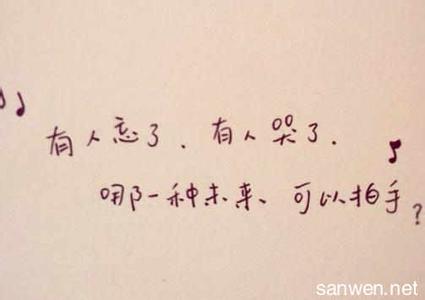 有人忘了.有人哭了.
哪一种未来、可以拍手?
sanwen.net